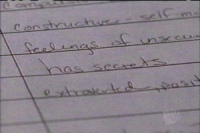 constructive - self-m
feelings of insecu
has secrets
extroverted - posit